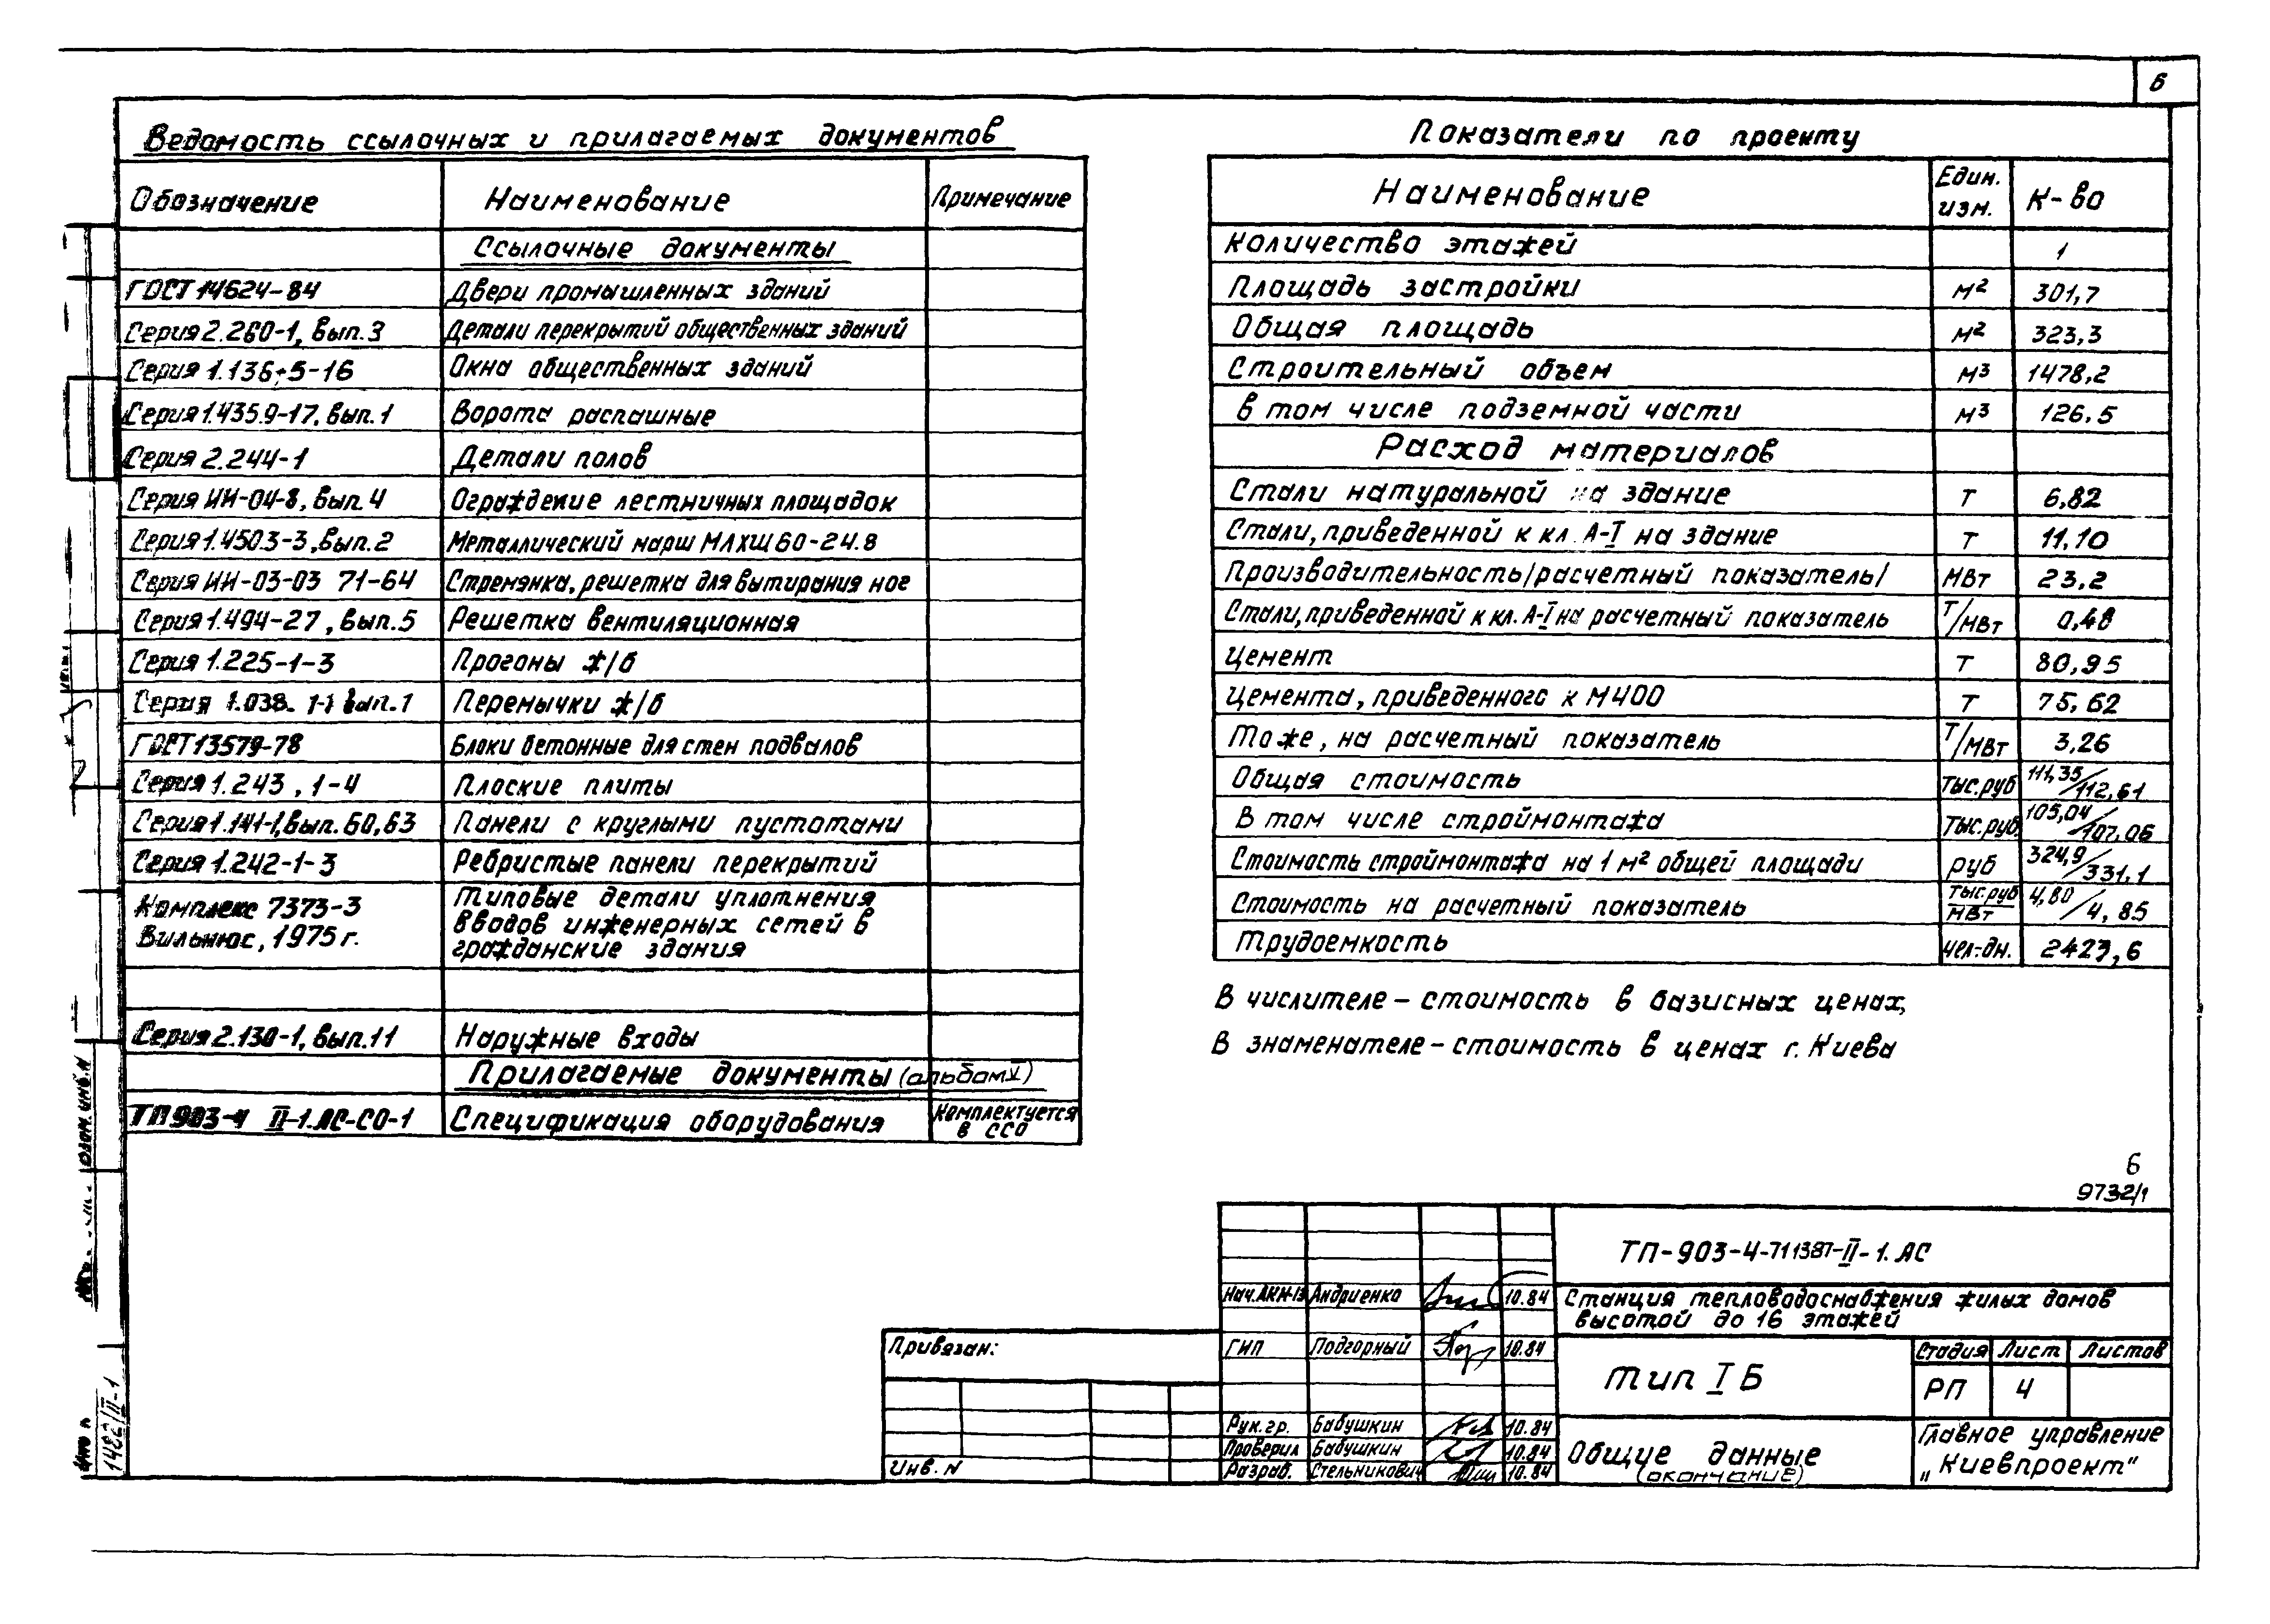 6
Ведомость ссылочных и прилагаемых документов
Обозначение Наименование Примечание
Ссылочные документы
ГОСТ 14624-84 Двери промышленных зданий
Серия 2.260-1, вып.3 Детали перекрытий общественных зданий
Серия 1.136.5-16 Окна общественных зданий
Серия 1.435.9-17, вып.1 Ворота распашные
Серия 2.244-1 Детали полов
Серия ИИ-04-8, вып.4 Ограждение лестничных площадок
Серия 1.450.3-3, вып.2 Металлический марш МЛХШ60-24.8
Серия ИИ-03-03 71-64 Стремянка, решетка для вытирания ног
Серия 1.494-27, вып.5 Решетка вентиляционная
Серия 1.225-1-3 Прогоны ж/б
Серия 1.038. 1-1 вып.1 Перемычки ж/б
ГОСТ 13579-78 Блоки бетонные для стен подвалов
Серия 1.243, 1-4 Плоские плиты
Серия 1.141-1, вып. 60,63 Панели с круглыми пустотами
Серия 1.242-1-3 Ребристые панели перекрытий
Комплекс 7373-3 Типовые детали уплотнения
Вильнюс, 1975 г. вводов инженерных сетей в
гражданские здания
Серия 2.130-1, вып.11 Наружные входы
Прилагаемые документы (альбом V)
ТП 903-4 II-1.АС-СО-1 Спецификация оборудования Комплектуется
в ССО
Показатели по проекту
Наименование Един. изм. К-во
Количество этажей 1
Площадь застройки м² 301,7
Общая площадь м² 323,3
Строительный объем м³ 1478,2
в том числе подземной части м³ 126,5
Расход материалов
Стали натуральной на здание т 6,82
Стали, приведенной к кл. А-I на здание т 11,10
Производительность/расчетный показатель/ МВт 23,2
Стали, приведенной к кл. А-I на расчетный показатель т/МВт 0,48
Цемент т 80,95
Цемента, приведенного к М400 т 75,62
Тоже, на расчетный показатель т/МВт 3,26
Общая стоимость тыс.руб 111,35/112,61
В том числе строймонтажа тыс.руб. 105,04/107,06
Стоимость строймонтажа на 1 м² общей площади руб 324,9/331,1
Стоимость на расчетный показатель тыс.руб/МВт 4,80/4,85
Трудоемкость чел-дн. 2423,6
В числителе – стоимость в базисных ценах,
В знаменателе – стоимость в ценах г. Киева
6
9732/1
ТП-903-4-71 1387-II-1.АС
Нач.АКМ-13 Андриенко 10.84
Станция тепловодоснабжения жилых домов
высотой до 16 этажей
ГИП Подгорный 10.84
Тип I Б
Стадия Лист Листов
РП 4
Рук.гр. Бабушкин 10.84
Проверил Бабушкин 10.84
Разраб. Стельникович 10.84
Общие данные
(окончание)
Главное управление
„Киевпроект"
Привязан:
Инв. N
1482/II-1